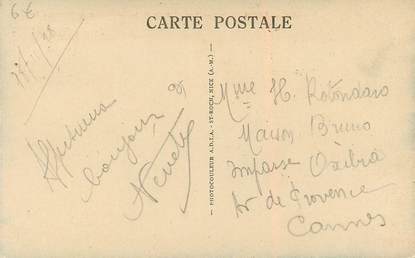 6€
CARTE POSTALE
Affectueux
bonjour
PHOTOCOULEUR A.D.I.A. - ST-ROCH, NICE (A.-M.)
Mme H. Rotondaro
Maison Bruno
Impasse Oxibia
Av de Provence
Cannes